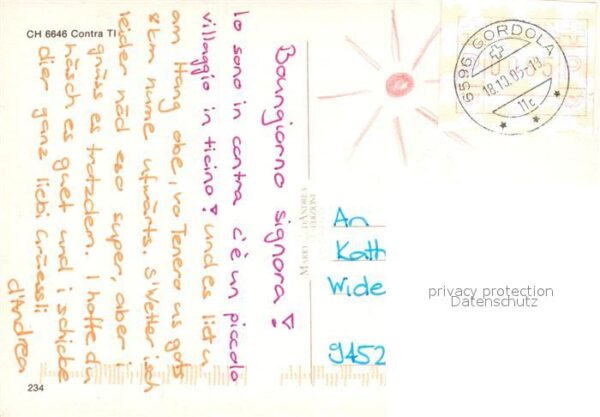 CH 6646 Contra TI
Boungiorno signora!
Io sono in contra c'è un piccolo
villaggio in ticino! und es liet u
am Hang obe, vo Tenero us gots
8km nume ufwärts. S'Wetter isch
leider nöd eso super, aber i
grüss es trotzdem. I hoffe du
häsch es guet und i schicke
dier ganz liebi Grüessli
d'Andrea
234
MARIO D'ANDREA
EDIZIONI
6596 GORDOLA
18.10.05-18
11c
An
Kath
Wide
9452
privacy protection
Datenschutz